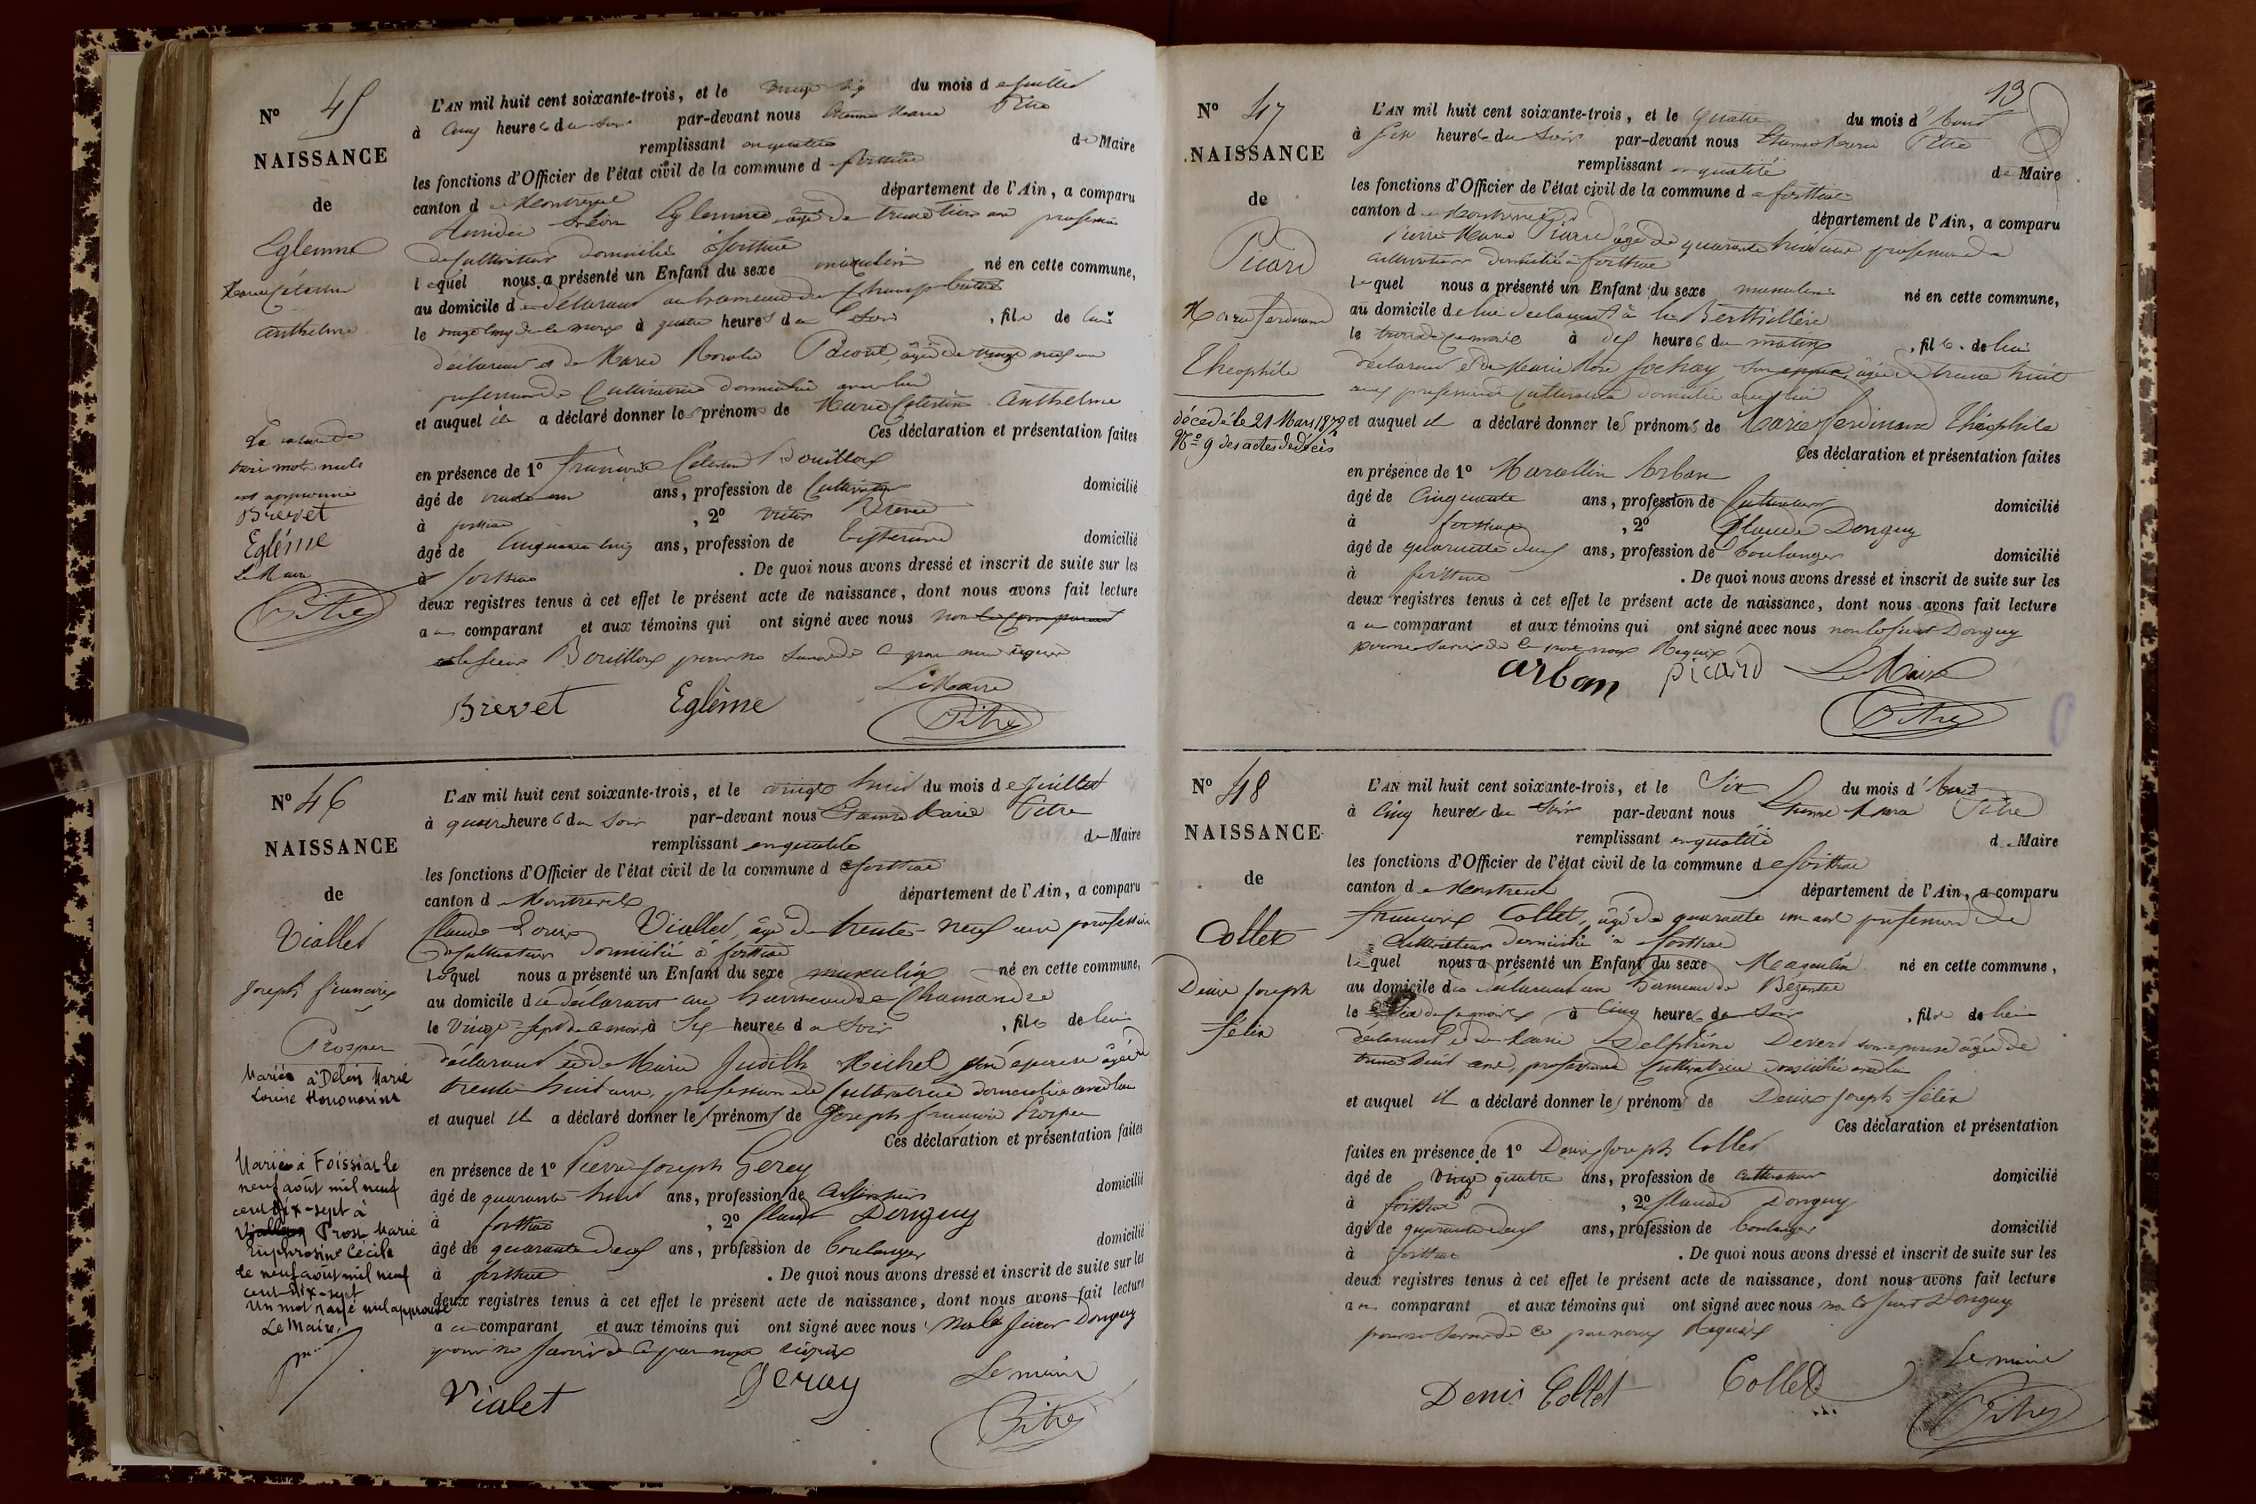 N° 45
NAISSANCE
de
Egleme
Marie Célestin
Anthelme
trois mots nuls
Brevet
Egléme
Le Maire
Pitre
L'AN mil huit cent soixante-trois, et le vingt six du mois de Juillet
à Cinq heures du soir par-devant nous Etienne Marie Pitre
remplissant en qualité de Maire
les fonctions d'Officier de l'état civil de la commune de foissiat
canton de Montrevel département de l'Ain, a comparu
Egleme âgé de trente trois ans profession
de Cultivateur domicilié à foissiat
lequel nous a présenté un Enfant du sexe masculin né en cette commune,
au domicile du déclarant au hameau de
le vingt cinq de ce mois à quatre heures du soir, fils de lui
déclarant et de Marie Rosalie âgée de vingt neuf ans
profession de Cultivatrice domiciliée avec lui
et auquel il a déclaré donner les prénoms de Marie Célestin Anthelme
Ces déclaration et présentation faites
en présence de 1° François Célestin Bouilloux
âgé de trente ans, profession de Cultivateur domicilié
à foissiat, 2° Victor Brevet
âgé de Cinquante cinq ans, profession de domicilié
à foissiat. De quoi nous avons dressé et inscrit de suite sur les
deux registres tenus à cet effet le présent acte de naissance, dont nous avons fait lecture
au comparant et aux témoins qui ont signé avec nous non le comparant
le sieur Bouilloux pour ne savoir de ce par nous requis
Brevet Egléme Le Maire
Pitre
N° 46
NAISSANCE
de
Viallet
Joseph François
Prosper
Mariée à Delin Marie
Louise Honnorine
Mariée à Foissiat le
neuf août mil neuf
cent dix-sept à
Prost Marie
Euphrosine Cécile
le neuf août mil neuf
cent dix-sept
Un mot rayé nul approuvé
Le Maire,
L'AN mil huit cent soixante-trois, et le vingt huit du mois de Juillet
à quatre heures du soir par-devant nous Etienne Marie Pitre
remplissant en qualité de Maire
les fonctions d'Officier de l'état civil de la commune de foissiat
canton de Montrevel département de l'Ain, a comparu
Claude Louis Viallet, âgé de trente-neuf ans profession
de Cultivateur domicilié à foissiat
lequel nous a présenté un Enfant du sexe masculin né en cette commune,
au domicile du déclarant au hameau de Chamandre
le vingt-sept de ce mois à Six heures du soir, fils de lui
déclarant et de Marie Judith Michel son épouse âgée de
trente huit ans, profession de Cultivatrice domiciliée avec lui
et auquel il a déclaré donner les prénoms de Joseph François Prosper
Ces déclaration et présentation faites
en présence de 1° Pierre Joseph Gerey
âgé de quarante-huit ans, profession de domicilié
à foissiat, 2° Claude Donguy
âgé de quarante deux ans, profession de boulanger domicilié
à foissiat. De quoi nous avons dressé et inscrit de suite sur les
deux registres tenus à cet effet le présent acte de naissance, dont nous avons fait lecture
au comparant et aux témoins qui ont signé avec nous non le sieur Donguy
pour ne savoir de ce par nous requis
Vialet Geray Le maire
Pitre
13
N° 47
NAISSANCE
de
Picard
Marie Ferdinand
Théophile
décédé le 21 Mars
N° 9 des actes de décès
L'AN mil huit cent soixante-trois, et le quatre du mois d'Aout
à Six heures du soir par-devant nous Etienne Marie Pitre
remplissant en qualité de Maire
les fonctions d'Officier de l'état civil de la commune de foissiat
canton de Montrevel département de l'Ain, a comparu
Pierre Marie Picard âgé de quarante huit ans profession de
cultivateur domicilié à foissiat
lequel nous a présenté un Enfant du sexe masculin né en cette commune,
au domicile de lui déclarant à la Berthillère
le trois de ce mois à dix heures du matin, fils de lui
déclarant et de Marie Rose Sochay son épouse, âgée de trente huit
ans profession de Cultivatrice domiciliée avec lui
et auquel il a déclaré donner les prénoms de Marie Ferdinand Théophile
Ces déclaration et présentation faites
en présence de 1° Marcellin Arban
âgé de Cinquante ans, profession de Cultivateur domicilié
à foissiat, 2° Claude Donguy
âgé de quarante deux ans, profession de boulanger domicilié
à foissiat. De quoi nous avons dressé et inscrit de suite sur les
deux registres tenus à cet effet le présent acte de naissance, dont nous avons fait lecture
au comparant et aux témoins qui ont signé avec nous non le sieur Donguy
pour ne savoir de ce par nous Requis
arban picard Le Maire
Pitre
N° 48
NAISSANCE
de
Collet
Denis Joseph
Félix
L'AN mil huit cent soixante-trois, et le Six du mois d'Aout
à Cinq heures du soir par-devant nous Etienne Marie Pitre
remplissant en qualité de Maire
les fonctions d'Officier de l'état civil de la commune de foissiat
canton de Montrevel département de l'Ain, a comparu
François Collet, âgé de quarante un ans profession de
Cultivateur domicilié à foissiat
lequel nous a présenté un Enfant du sexe Masculin né en cette commune,
au domicile du déclarant au hameau de Bézentet
le Six de ce mois à Cinq heures du soir, fils de lui
déclarant et de Marie Delphine Devers son épouse âgée de
trente huit ans, profession de Cultivatrice domiciliée avec lui
et auquel il a déclaré donner les prénoms de Denis Joseph Félix
Ces déclaration et présentation
faites en présence de 1° Denis Joseph Collet
âgé de vingt quatre ans, profession de cultivateur domicilié
à foissiat, 2° Claude Donguy
âgé de quarante deux ans, profession de boulanger domicilié
à foissiat. De quoi nous avons dressé et inscrit de suite sur les
deux registres tenus à cet effet le présent acte de naissance, dont nous avons fait lecture
au comparant et aux témoins qui ont signé avec nous non le sieur Donguy
pour ne savoir de ce par nous Requis
Denis Collet Collet Le maire
Pitre